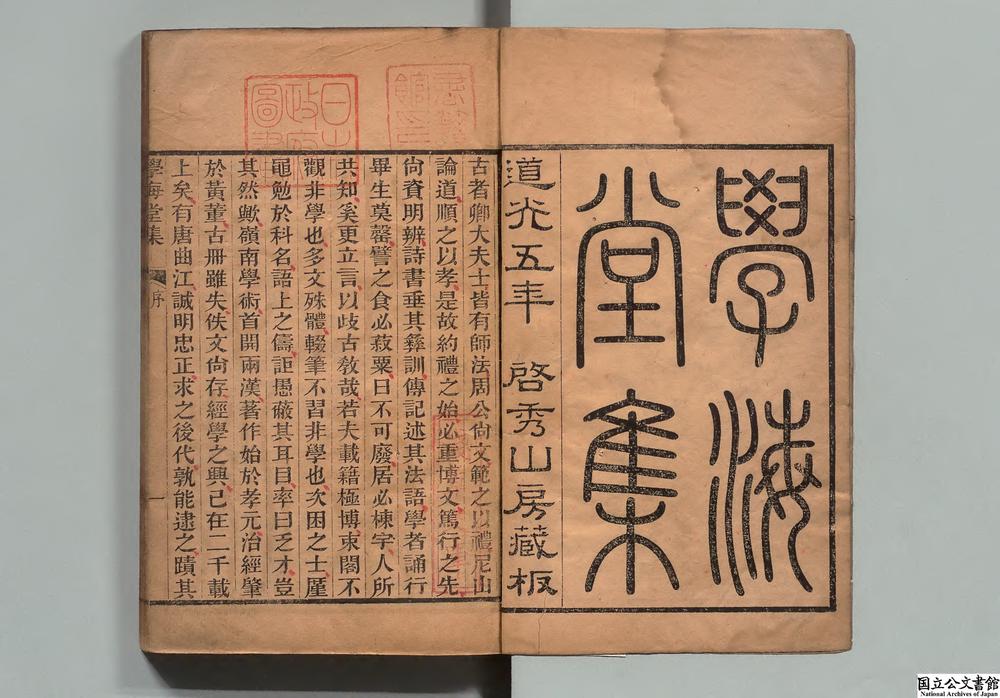 學海
堂集
道光五年 啓秀山房藏板
古者卿大夫士皆有師法周公尙文範之以禮尼山
論道順之以孝是故約禮之始必重博文篤行之先
尙資明辨詩書垂其彝訓傳記述其法語學者誦行
畢生莫罄譬之食必菽粟日不可廢居必棟宇人所
共知奚更立言以歧古敎哉若夫載籍極博束閣不
觀非學也多文殊體輟筆不習非學也次困之士厪
黽勉於科名語上之儔詎愚蔽其耳目率曰乏才豈
其然歟嶺南學術首開兩漢著作始於孝元治經肇
於黃董古册雖失佚文尙存經學之興已在二千載
上矣有唐曲江誠明忠正求之後代孰能逮之蹟其
學海堂集 序 一
日本政府圖書
国立公文書館
National Archives of Japan